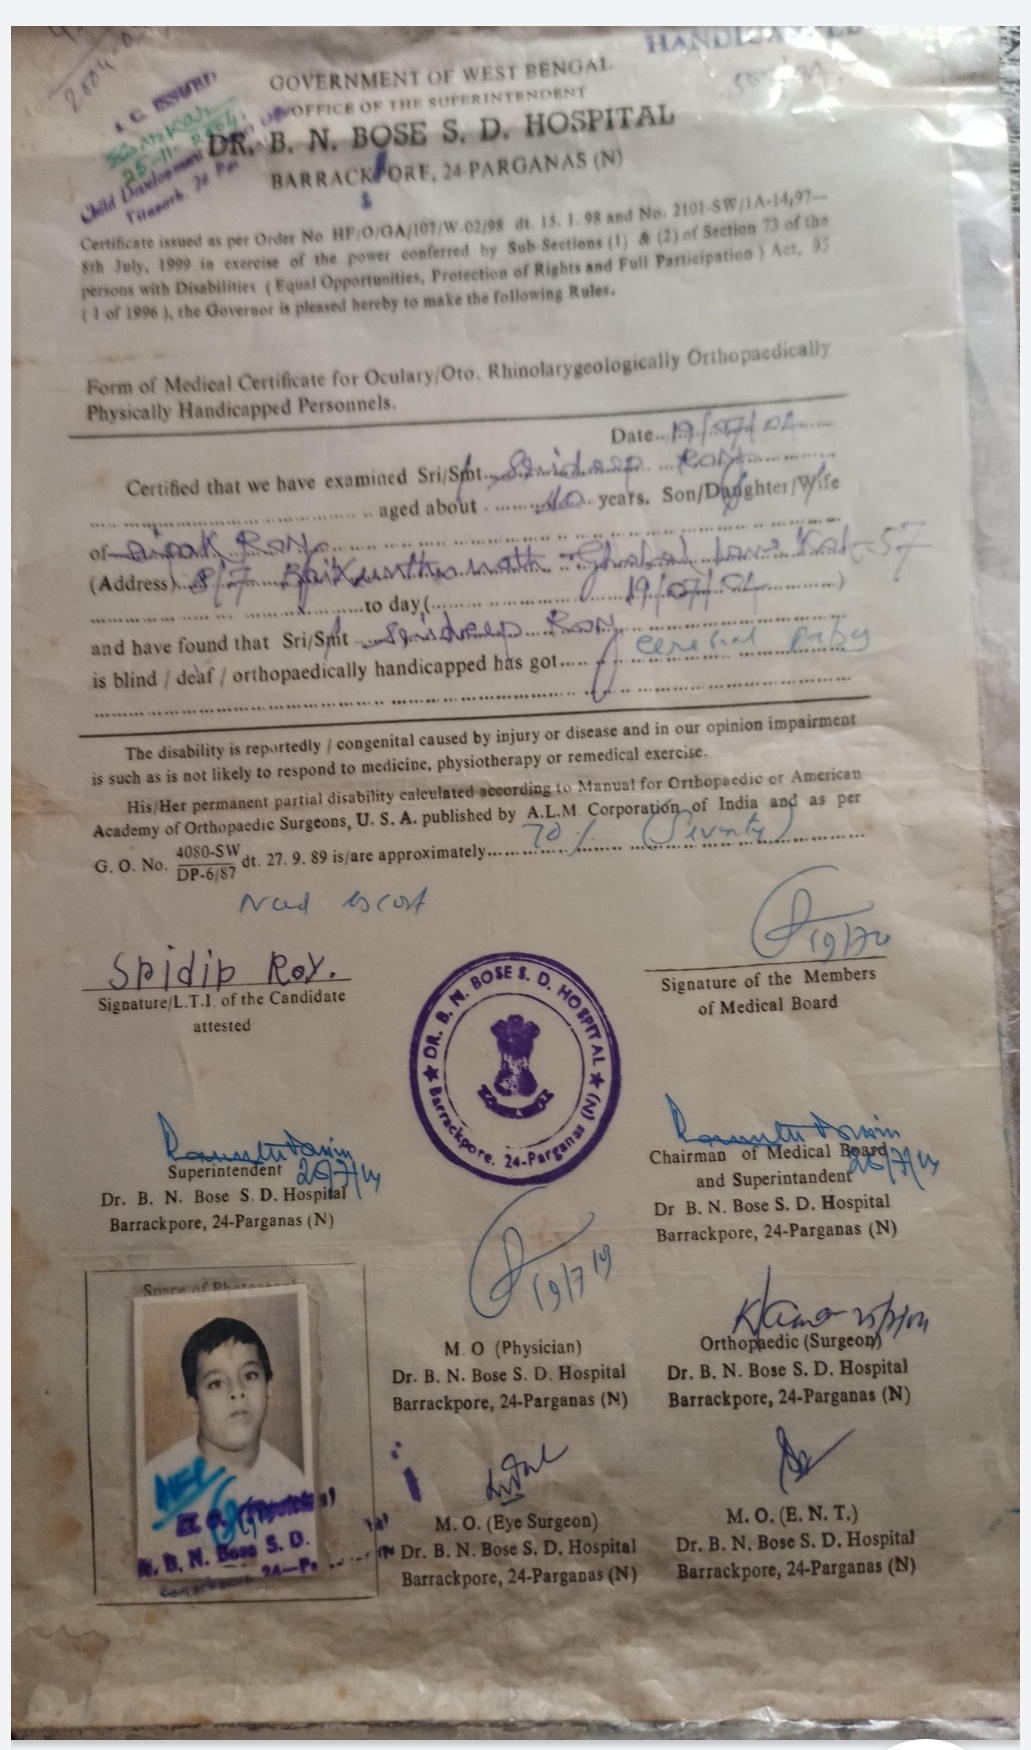 HANDICAPPED
I. C. ISSUED
25-11-2004
Child Development
Titagarh, 24 Par
GOVERNMENT OF WEST BENGAL
OFFICE OF THE SUPERINTENDENT
DR. B. N. BOSE S. D. HOSPITAL
BARRACKPORE, 24-PARGANAS (N)
Certificate issued as per Order No HF/O/GA/107/W-02/98 dt. 15. 1. 98 and No. 2101-SW/1A-14,97—
8th July, 1999 in exercise of the power conferred by Sub-Sections (1) & (2) of Section 73 of the
persons with Disabilities ( Equal Opportunities, Protection of Rights and Full Participation ) Act, 95
( 1 of 1996 ), the Governor is pleased hereby to make the following Rules.
Form of Medical Certificate for Oculary/Oto. Rhinolarygeologically Orthopaedically
Physically Handicapped Personnels.
Date 19/07/04
Certified that we have examined Sri/Smt. Srideep Roy
aged about 10 years. Son/Daughter/Wife
of Dipak Roy
(Address) 8/7 Baikunthanath Ghoshal Lane Kol-57
to day ( 19/07/04 )
and have found that Sri/Smt Srideep Roy
is blind / deaf / orthopaedically handicapped has got cerebral palsy
The disability is reportedly / congenital caused by injury or disease and in our opinion impairment
is such as is not likely to respond to medicine, physiotherapy or remedical exercise.
His/Her permanent partial disability calculated according to Manual for Orthopaedic or American
Academy of Orthopaedic Surgeons, U. S. A. published by A.L.M Corporation of India and as per
G. O. No. 4080-SW/DP-6/87 dt. 27. 9. 89 is/are approximately 70% (Seventy)
Need escort
Sridip Roy.
Signature/L.T.I. of the Candidate
attested
Signature of the Members
of Medical Board
DR. B. N. BOSE S. D. HOSPITAL (N)
Barrackpore, 24-Parganas
Superintendent 26/7/04
Dr. B. N. Bose S. D. Hospital
Barrackpore, 24-Parganas (N)
Chairman of Medical Board
and Superintandent 26/7/04
Dr B. N. Bose S. D. Hospital
Barrackpore, 24-Parganas (N)
Space of Photograph
M. O (Physician)
Dr. B. N. Bose S. D. Hospital
Barrackpore, 24-Parganas (N)
Orthopaedic (Surgeon)
Dr. B. N. Bose S. D. Hospital
Barrackpore, 24-Parganas (N)
Dr. B. N. Bose S. D.
M. O. (Eye Surgeon)
Dr. B. N. Bose S. D. Hospital
Barrackpore, 24-Parganas (N)
M. O. (E. N. T.)
Dr. B. N. Bose S. D. Hospital
Barrackpore, 24-Parganas (N)